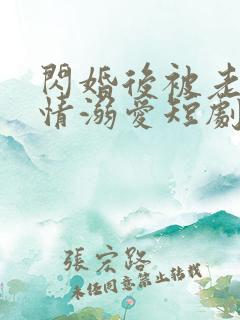 閃婚後被老
情溺愛短劇
張宏路
未经同意禁止转载